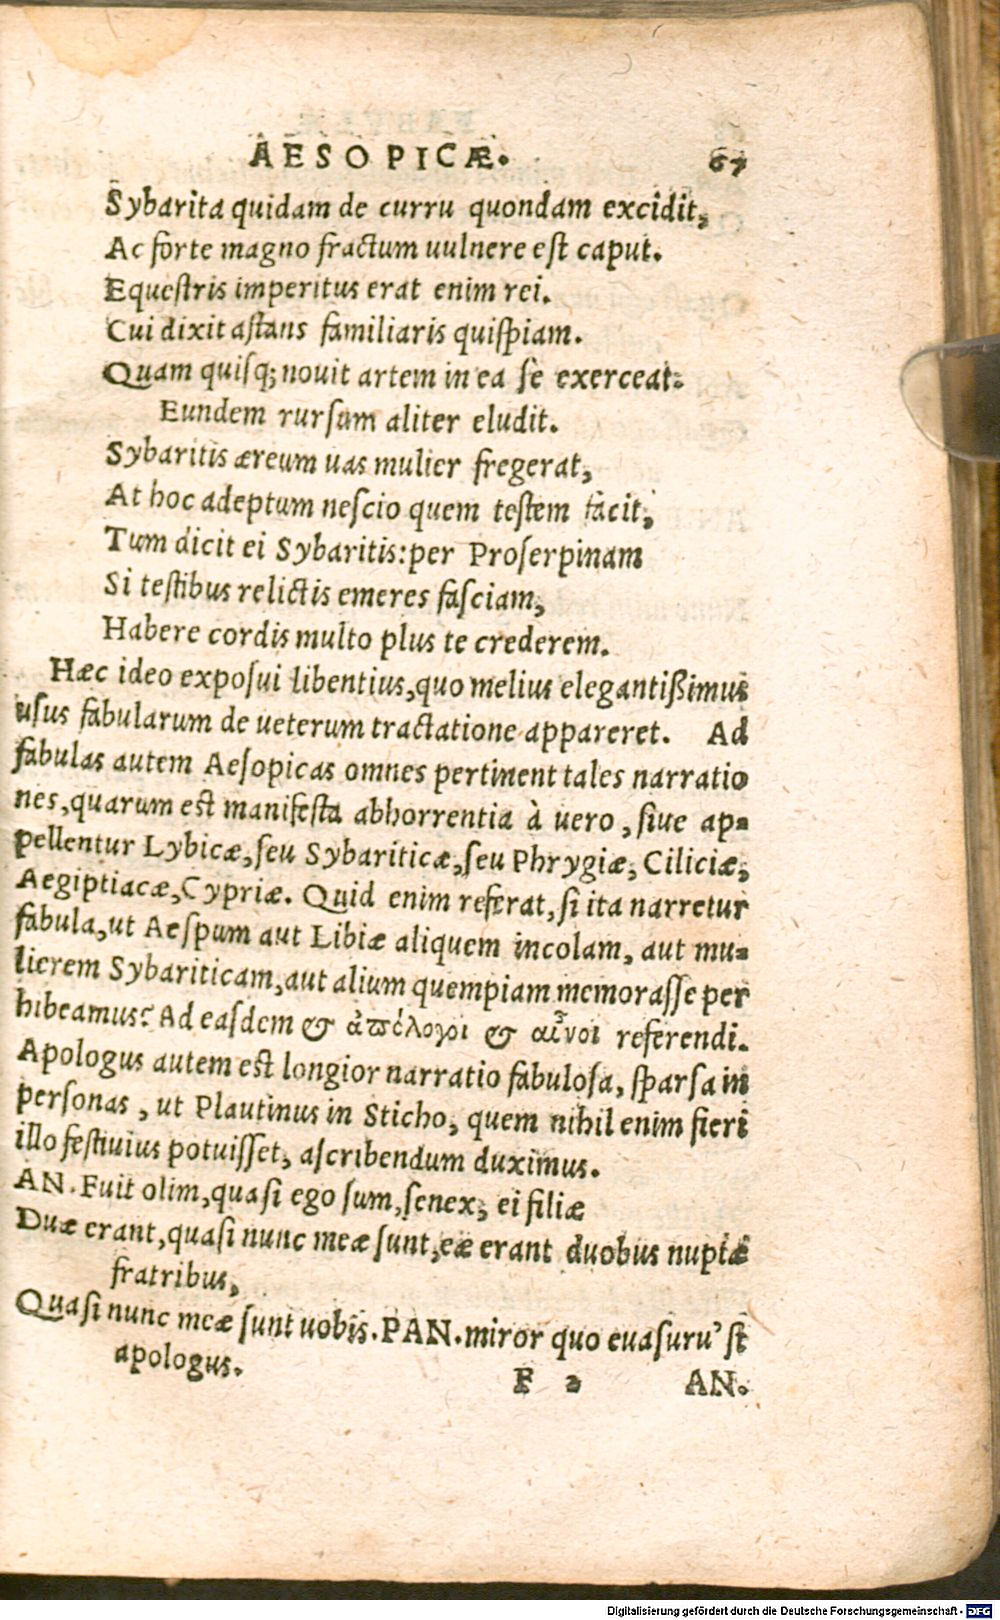 AESOPICÆ. 67
Sybarita quidam de curru quondam excidit,
Ac forte magno fractum uulnere est caput.
Equestris imperitus erat enim rei.
Cui dixit astans familiaris quispiam.
Quam quisq; nouit artem in ea se exerceat.
Eundem rursum aliter eludit.
Sybaritis æreum uas mulier fregerat,
At hoc adeptum nescio quem testem facit,
Tum dicit ei Sybaritis: per Proserpinam
Si testibus relictis emeres fasciam,
Habere cordis multo plus te crederem.
Hæc ideo exposui libentius, quo melius elegantißimus
usus fabularum de ueterum tractatione appareret. Ad
fabulas autem Aesopicas omnes pertinent tales narratio
nes, quarum est manifesta abhorrentia à uero, siue ap-
pellentur Lybicæ, seu Sybariticæ, seu Phrygiæ, Ciliciæ,
Aegiptiacæ, Cypriæ. Quid enim referat, si ita narretur
fabula, ut Aespum aut Libiæ aliquem incolam, aut mu-
lierem Sybariticam, aut alium quempiam memorasse per
hibeamus? Ad easdem & ἀπόλογοι & αἶνοι referendi.
Apologus autem est longior narratio fabulosa, sparsa in
personas, ut Plautinus in Sticho, quem nihil enim fieri
illo festiuius potuisset, ascribendum duximus.
AN. Fuit olim, quasi ego sum, senex, ei filiæ
Duæ erant, quasi nunc meæ sunt, eæ erant duobus nuptæ
fratribus,
Quasi nunc meæ sunt uobis. PAN. miror quo euasuru' st
apologus.
F 2 AN.
Digitalisierung gefördert durch die Deutsche Forschungsgemeinschaft - DFG